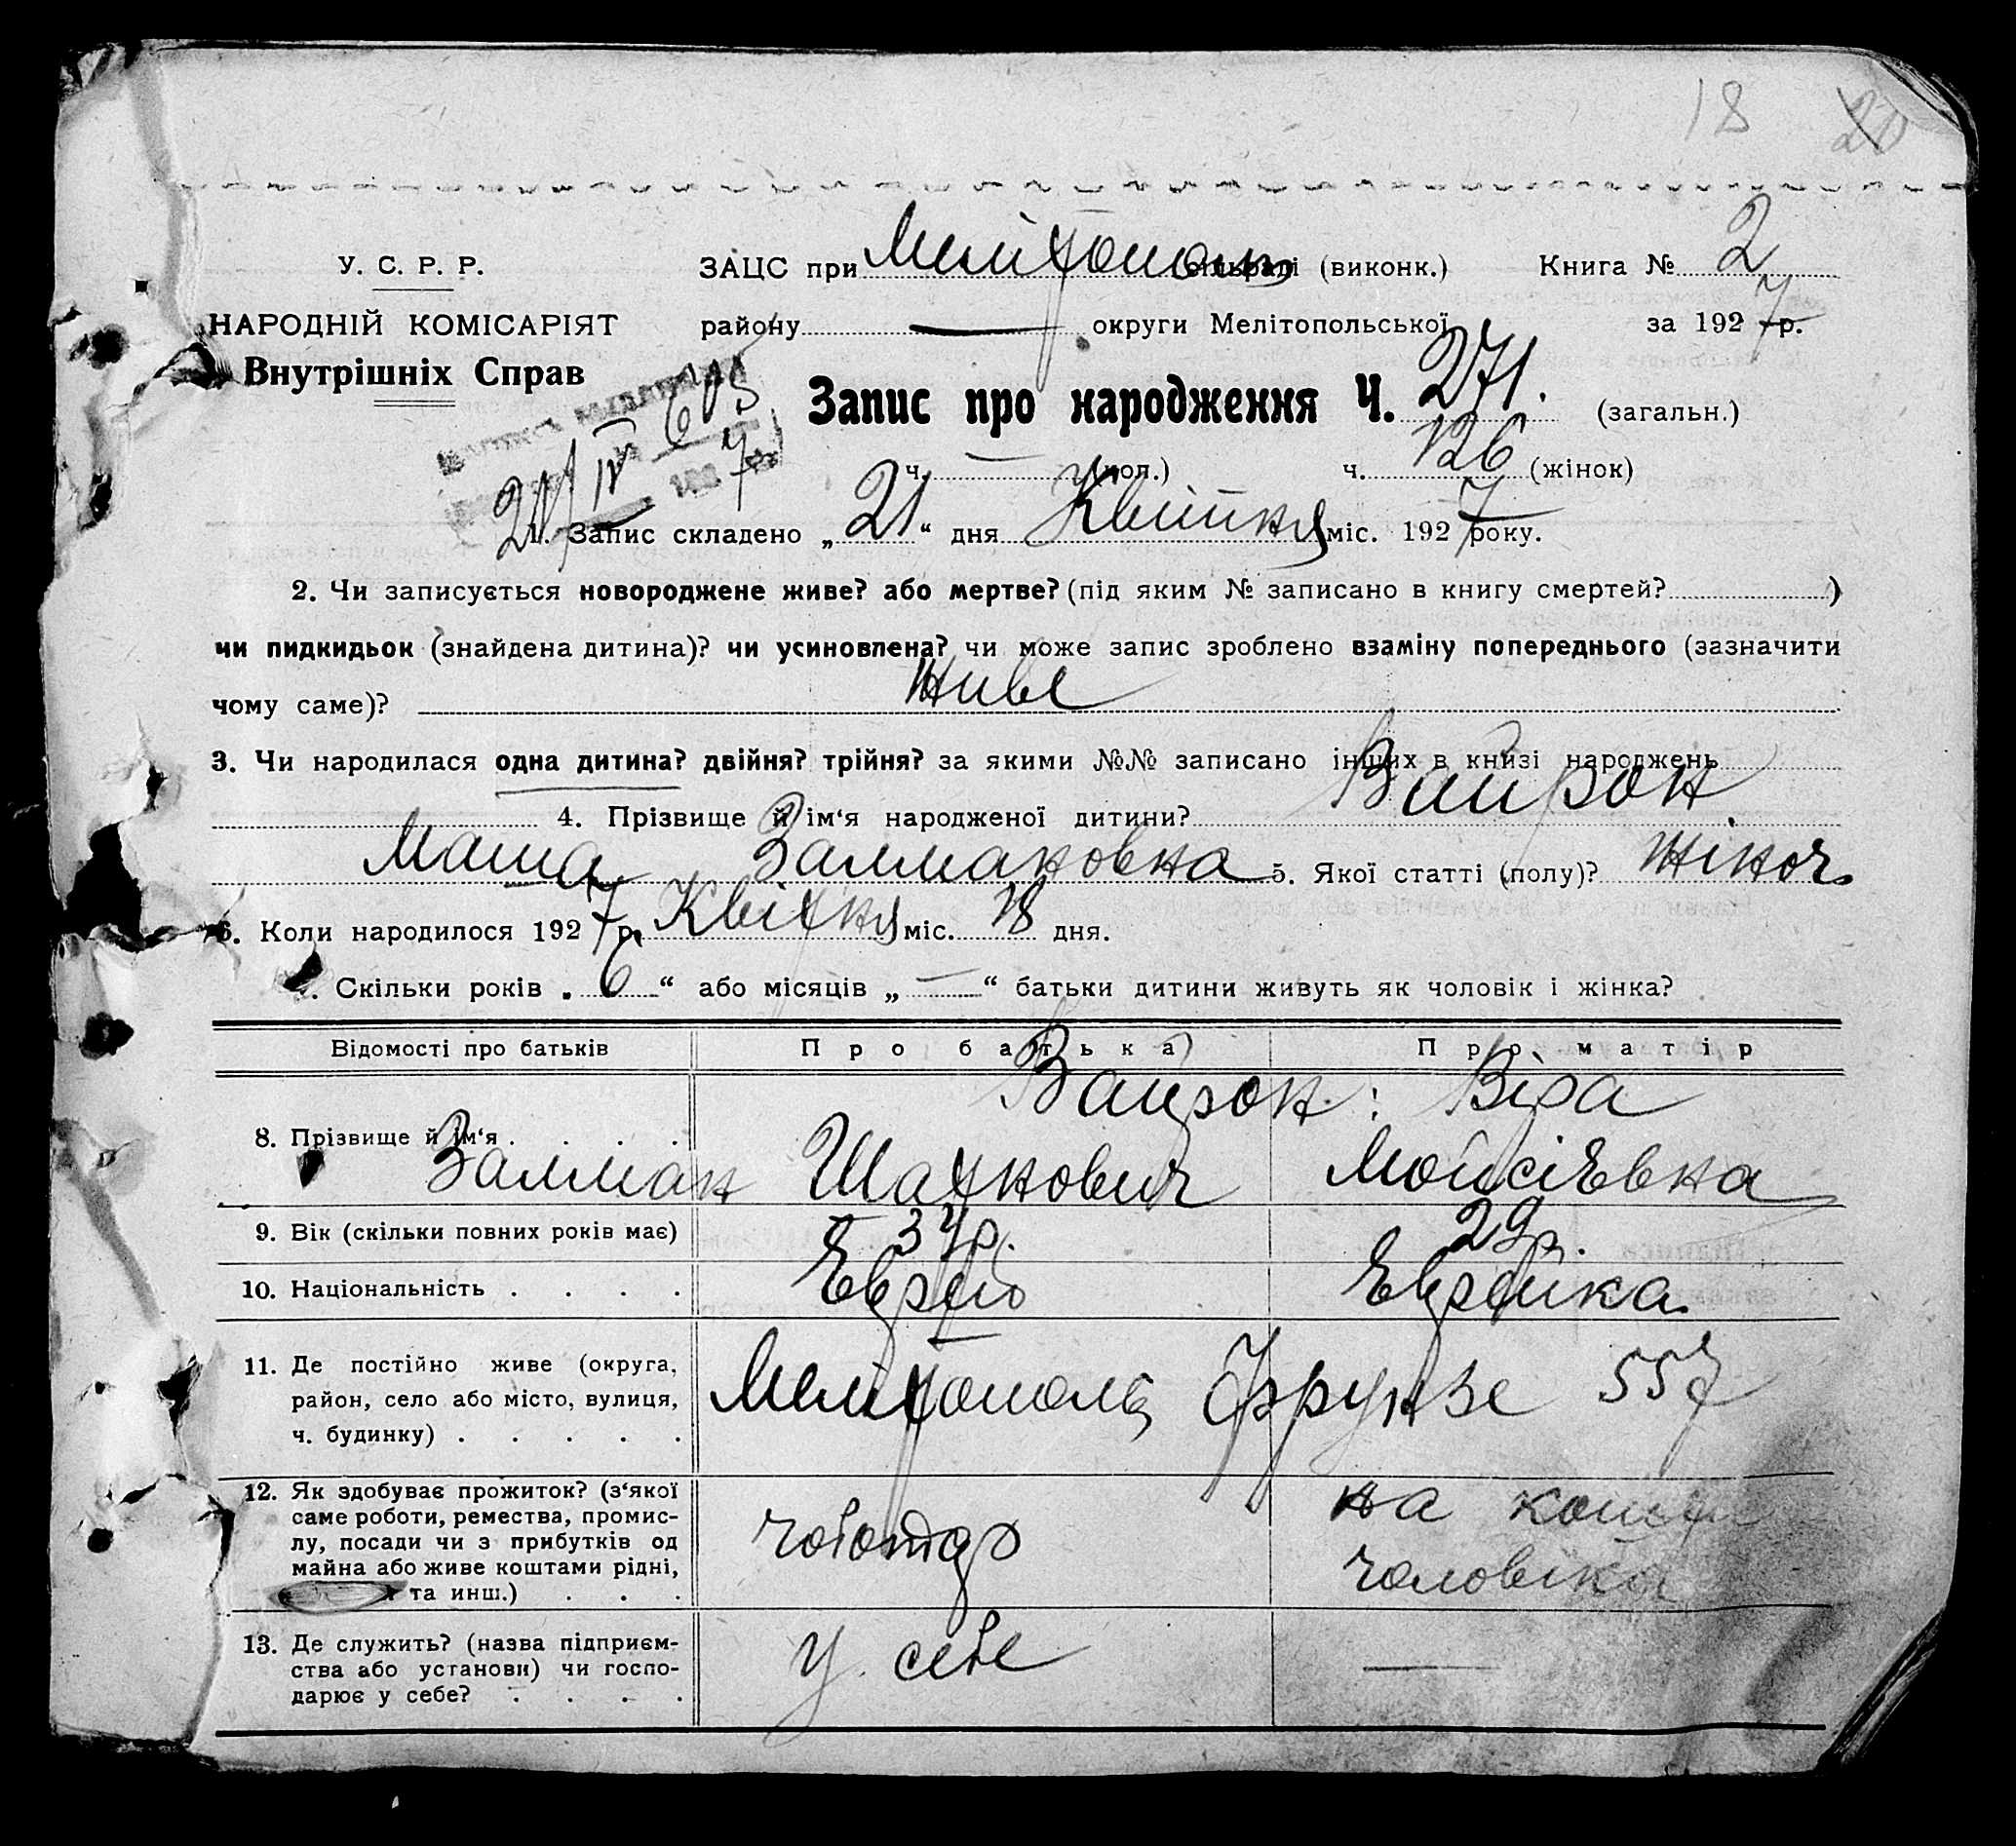 18 20
У. С. Р. Р. ЗАЦС при Мелітополь сільраді (виконк.) Книга № 2
НАРОДНІЙ КОМІСАРІЯТ району — округи Мелітопольської за 1927 р.
Внутрішніх Справ
Запис про народження Ч. 271. (загальн.)
605
ч. — (чол.) ч. 126 (жінок)
21/IV 1927
1. Запис складено „21“ дня Квітня міс. 1927 року.
2. Чи записується новороджене живе? або мертве? (під яким № записано в книгу смертей? )
чи пидкидьок (знайдена дитина)? чи усиновлена? чи може запис зроблено взаміну попереднього (зазначити
чому саме)? живе
3. Чи народилася одна дитина? двійня? трійня? за якими №№ записано інших в книзі народжень
4. Прізвище й ім‘я народженої дитини? Вайрон
Маша Залмановна 5. Якої статті (полу)? жіноч.
6. Коли народилося 1927 р. Квітня міс. 18 дня.
Скільки років „6“ або місяців „—“ батьки дитини живуть як чоловік і жінка?
Відомості про батьків Про батька Про матір
Вайрон: Віра
8. Прізвище й ім‘я . . . . Залман Шахнович Мойсіевна
9. Вік (скільки повних років має) 34р. 29р.
10. Національність . . . . Еврей Еврейка
11. Де постійно живе (округа,
район, село або місто, вулиця, Мелітополь, Фрунзе 55
ч. будинку) . . . . .
12. Як здобуває прожиток? (з‘якої на кошти
саме роботи, ремества, промис-
лу, посади чи з прибутків од чоботар
майна або живе коштами рідні, чоловіка
та инш.) . . .
13. Де служить? (назва підприєм-
ства або установи) чи госпо- у себе —
дарює у себе? . . . .